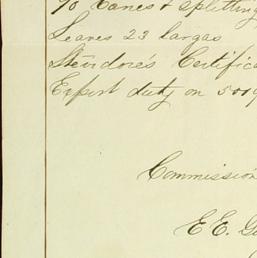 To Canes & Splitting
Leaves 23 largas
Stevdore's Certific
Export duty on 5019
Commission
E E. G